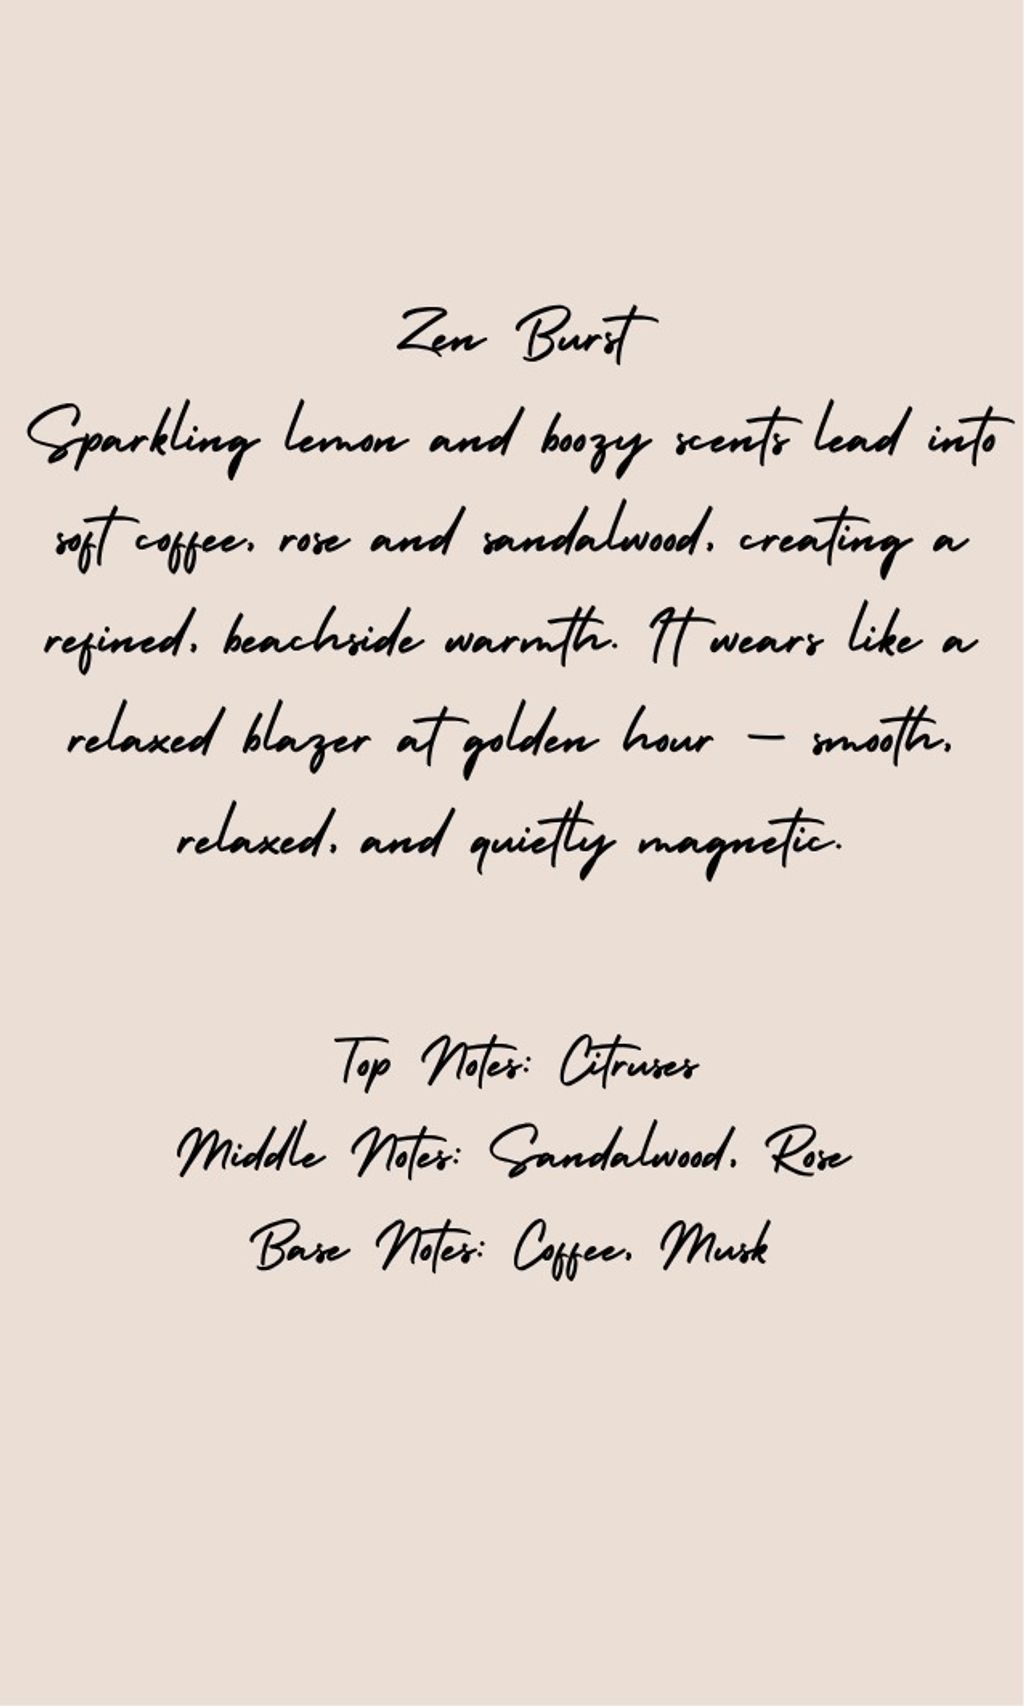 Zen Burst
Sparkling lemon and boozy scents lead into
soft coffee, rose and sandalwood, creating a
refined, beachside warmth. It wears like a
relaxed blazer at golden hour — smooth,
relaxed, and quietly magnetic.
Top Notes: Citruses
Middle Notes: Sandalwood, Rose
Base Notes: Coffee, Musk